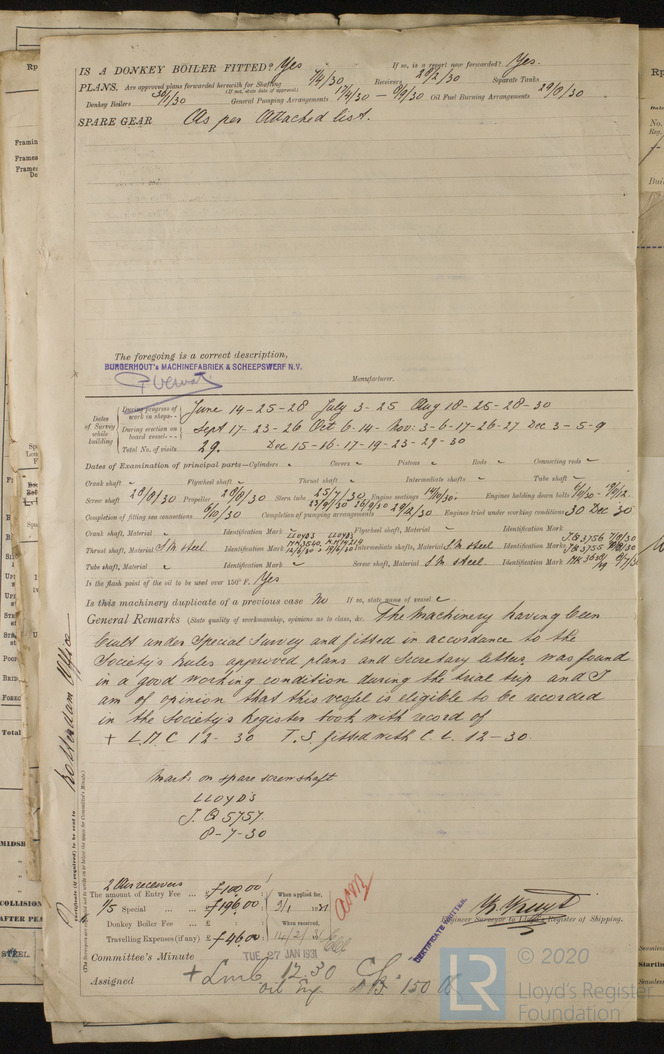 IS A DONKEY BOILER FITTED? Yes If so, is a report now forwarded? Yes.
PLANS. Are approved plans forwarded herewith for Shafting 7/4/30 Receivers 28/2/30 Separate Tanks
(If not, state date of approval)
Donkey Boilers General Pumping Arrangements 17/4/30 — Oil Fuel Burning Arrangements 29/8/30
SPARE GEAR As per Attached list.
The foregoing is a correct description,
BURGERHOUT'S MACHINEFABRIEK & SCHEEPSWERF N.V.
Manufacturer.
Dates of Survey while building
During progress of work in shops - - June 14-25-28 July 3-25 Aug 18-25-28-30
During erection on board vessel - - - Sept 17-23-26 Oct 6-14 Nov: 3-6-17-26-27 Dec 3-5-9
Total No. of visits 29. Dec 15-16-17-19-23-29-30
Dates of Examination of principal parts—Cylinders " Covers " Pistons " Rods " Connecting rods "
Crank shaft " Flywheel shaft " Thrust shaft " Intermediate shafts " Tube shaft "
Screw shaft 28/8/30 Propeller 28/8/30 Stern tube 25/7/30 Engine seatings 14/10/30. Engines holding down bolts
Completion of fitting sea connections 6/10/30 Completion of pumping arrangements 29/12/30 Engines tried under working conditions 30 Dec 30
Crank shaft, Material " Identification Mark " Flywheel shaft, Material " Identification Mark
Thrust shaft, Material S.M. steel Identification Mark LLOYD'S Intermediate shafts, Material S.M. steel Identification Marks J.Q 3756
J.Q 3755
Tube shaft, Material " Identification Mark " Screw shaft, Material S.M. steel Identification Mark
Is the flash point of the oil to be used over 150° F. Yes
Is this machinery duplicate of a previous case No If so, state name of vessel "
General Remarks (State quality of workmanship, opinions as to class, &c. The Machinery having been
built under Special Survey and fitted in accordance to the
Society's Rules approved plans and Secretary letters, was found
in a good working condition during the trial trip and I
am of opinion that this vessel is eligible to be recorded
in the Society's Register book with record of
+ L.M.C 12-30 T.S. fitted with C.L. 12-30.
Mark on spare screwshaft
LLOYD'S
J.Q 5757.
8-7-30
Rotterdam Office
2 Air receivers
The amount of Entry Fee ... £ 100.00 When applied for,
4/5 Special ... ... £ 196.00 9/1 1931
Donkey Boiler Fee ... £ When received,
Travelling Expenses (if any) £ 46.00 14/2/31
CERTIFICATE WRITTEN.
Engineer Surveyor to Lloyd's Register of Shipping.
Committee's Minute TUE. 27 JAN 1931
Assigned + LMC 12.30 CL
Oil Eng DB. 150 lb
© 2020
LR
Lloyd's Register
Foundation